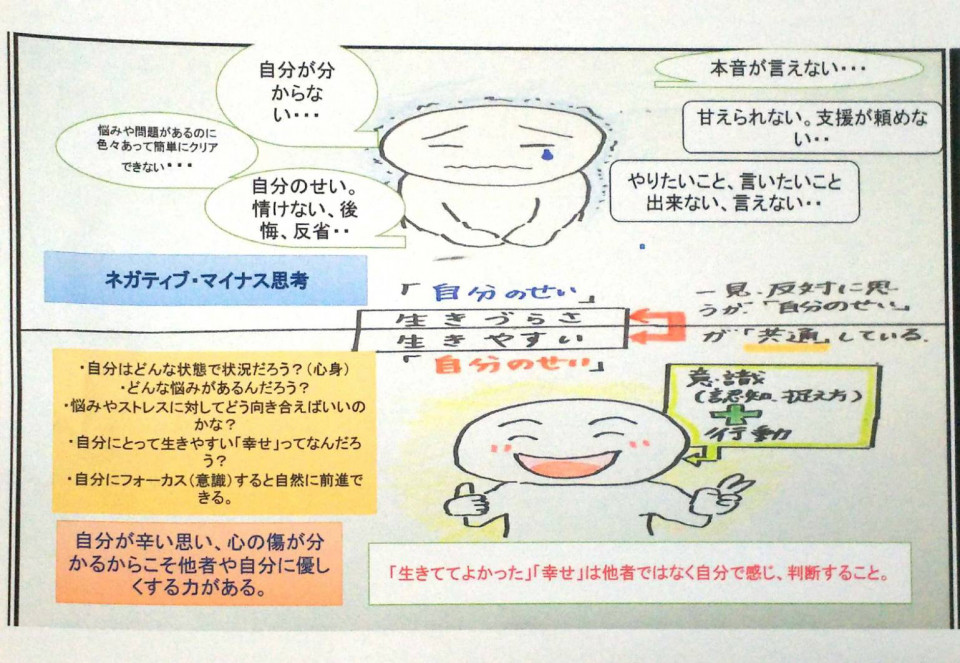 自分が分
からな
い・・・
悩みや問題があるのに
色々あって簡単にクリア
できない・・・
自分のせい。
情けない、後
悔、反省・・
本音が言えない・・・
甘えられない。支援が頼めな
い・・
やりたいこと、言いたいこと
出来ない、言えない・・
ネガティブ・マイナス思考
「自分のせい」
生きづらさ
生きやすい
「自分のせい」
一見、反対に思
うが、「自分のせい」
が「共通」している。
・自分はどんな状態で状況だろう？(心身)
・どんな悩みがあるんだろう？
・悩みやストレスに対してどう向き合えばいいの
かな？
・自分にとって生きやすい「幸せ」ってなんだろ
う？
・自分にフォーカス(意識)すると自然に前進で
きる。
意識
(認知、捉え方)
+
行動
自分が辛い思い、心の傷が分
かるからこそ他者や自分に優し
くする力がある。
「生きててよかった」「幸せ」は他者ではなく自分で感じ、判断すること。